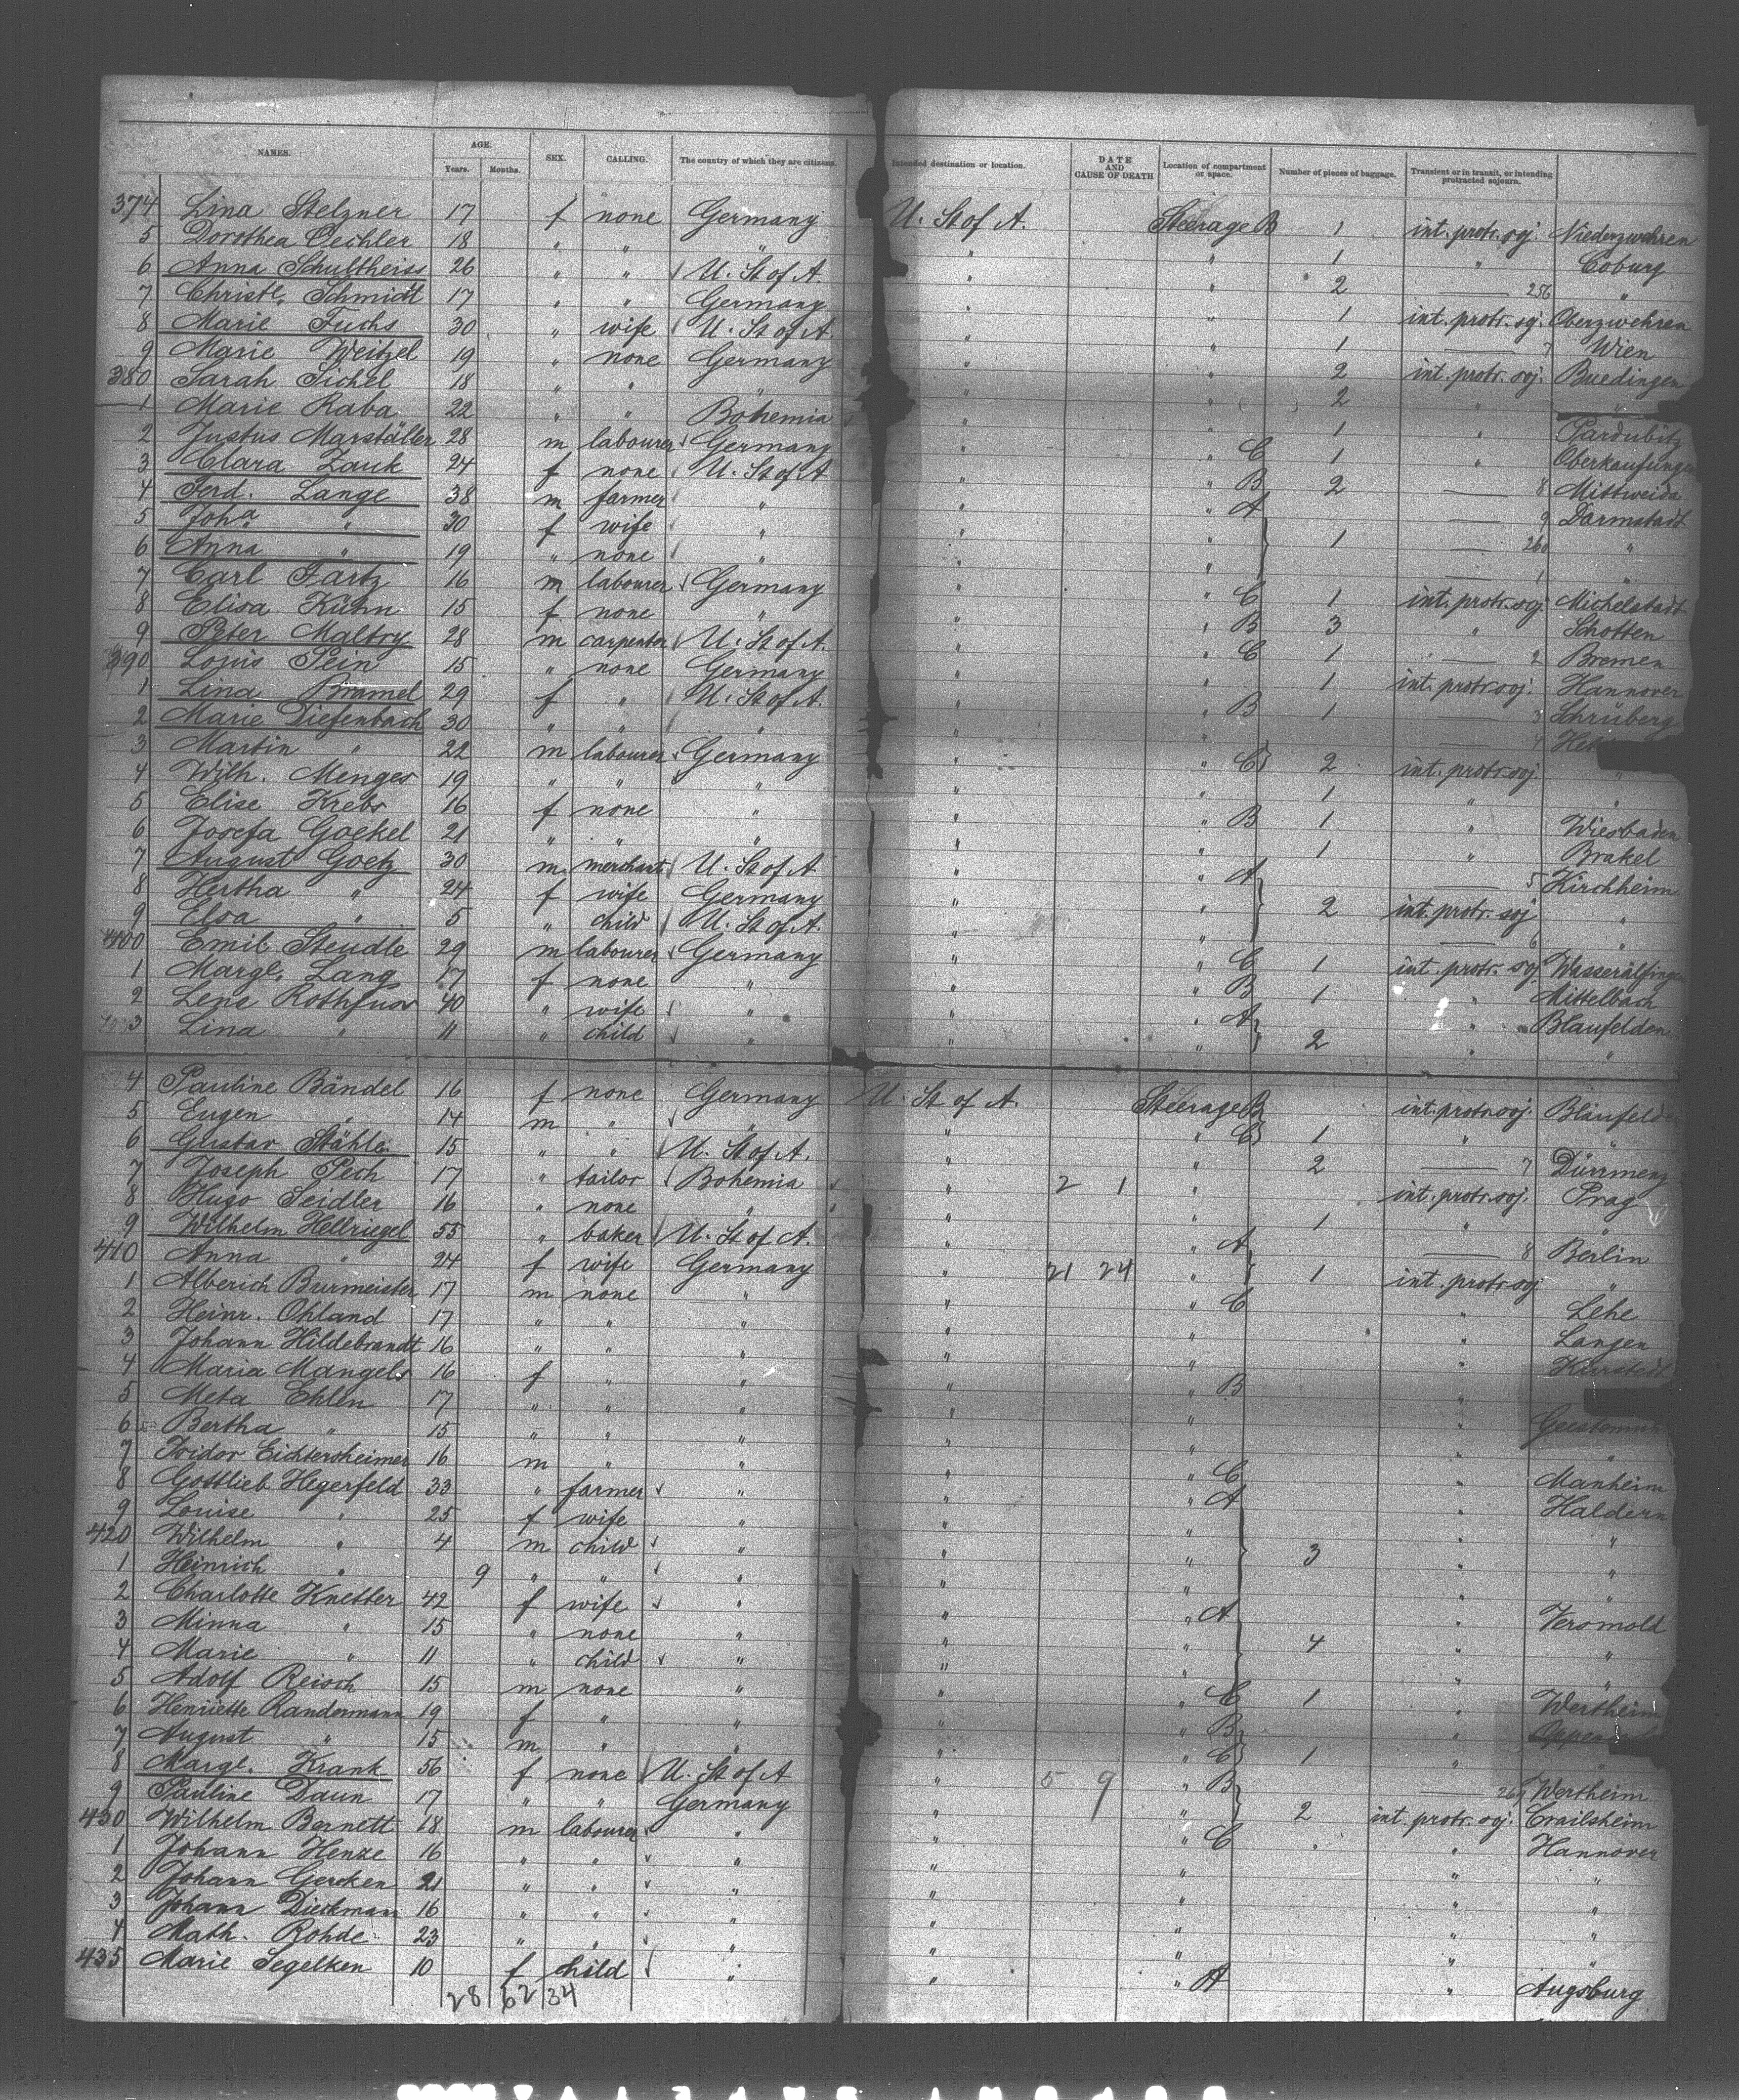 NAMES. AGE. SEX. CALLING. The country of which they are citizens. Intended destination or location. DATE AND CAUSE OF DEATH Location of compartment or space. Number of pieces of baggage. Transient or in transit, or intending protracted sojourn.
Years. Months.
374 Lina Stelzner 17 f none Germany U. St of A. Steerage B 1 int. protr. soj. Niederzwehren
5 Dorothea Oechler 18 " " " " " 1 " Coburg
6 Anna Schultheiss 26 " " U. St of A. " " 2 256 "
7 Christl. Schmidt 17 " " Germany " " 1 int. protr. soj. Oberzwehren
8 Marie Fuchs 30 " wife U. St of A. " " 1 7 Wien
9 Marie Weitzel 19 " none Germany " " 2 int. protr. soj. Buedingen
380 Sarah Sichel 18 " " " " " 2 "
1 Marie Raba 22 " " Bohemia " " 1 " Pardubitz
2 Justus Marställer 28 m labourer Germany " " C 1 " Oberkaufungen
3 Clara Zauk 24 f none U. St of A " " B 2 8 Mittweida
4 Ferd. Lange 38 m farmer " " " A 9 Darmstadt
5 Joha " 30 f wife " " " 1 260 "
6 Anna " 19 " none " " " 1 "
7 Carl Fartz 16 m labourer Germany " " C 1 int. protr. soj. Michelstadt
8 Elisa Kühn 15 f none " " " B 3 " Schotten
9 Peter Maltry 28 m carpenter U. St of A. " " C 1 2 Bremen
390 Louis Pein 15 " none Germany " 1 int. protr. soj. Hannover
1 Lina Bramel 29 f " U. St of A. " " B 1 3
2 Marie Diefenbach 30 " " " " " 4
3 Martin " 22 m labourer Germany " " C 2 int. protr. soj. "
4 Wilh. Menges 19 " " " " " 1 " "
5 Elise Krebs 16 f none " " " B 1 " Wiesbaden
6 Josefa Goekel 21 " " " " " 1 " Brakel
7 August Goetz 30 m merchant U. St of A " " A 5 Kirchheim
8 Hertha " 24 f wife Germany " " 2 int. protr. soj "
9 Elsa " 5 " child U. St of A. " " 6 "
400 Emil Steudle 29 m labourer Germany " " C 1 int. protr. soj. Wasseralfingen
1 Margl. Lang 17 f none " " " B 1 " Mittelbach
2 Lene Rothfuss 40 " wife " " " A " Blaufelden
3 Lina " 11 " child " " " 2 " "
4 Pauline Bändel 16 f none Germany U. St of A. Steerage B int. protr. soj. Blaufeld
5 Eugen " 14 m " " " " C 1 " "
6 Gustav Stähle 15 " " U. St of A. " " 2 7 Dürrmenz
7 Joseph Pech 17 " tailor Bohemia " 2 1 " int. protr. soj. Prag
8 Hugo Seidler 16 " none " " " 1 "
9 Wilhelm Hellriegel 55 " baker U. St of A. " " A 8 Berlin
410 Anna " 24 f wife Germany " 21 24 " 1 int. protr. soj "
1 Alberich Burmeister 17 m none " " " C " Lehe
2 Heinr. Ohland 17 " " " " " " Langen
3 Johann Hildebrandt 16 " " " " " "
4 Maria Mangels 16 f " " " " B "
5 Meta Ehlen 17 " " " " " " Geestemün
6 Bertha " 15 " " " " " " "
7 Isidor Eichtersheimer 16 m " " " " C " Manheim
8 Gottlieb Hegerfeld 33 " farmer " " " A " Haldern
9 Louise " 25 f wife " " " " "
420 Wilhelm " 4 m child " " " 3 " "
1 Heinrich " 9 " " " " " " "
2 Charlotte Knetter 42 f wife " " " A " Versmold
3 Minna " 15 " none " " " 4 " "
4 Marie " 11 " child " " " " "
5 Adolf Reisch 15 m none " " " C 1 " Wertheim
6 Henriette Randermann 19 f " " " " B "
7 August " 15 m " " " " C 1 " "
8 Margl. Krank 56 f none U. St of A " 5 9 " B 269 Wertheim
9 Pauline Daun 17 " " Germany " " 2 int. protr. soj. Crailsheim
430 Wilhelm Bernett 18 m labourer " " " C " " Hannover
1 Johann Henze 16 " " " " " " "
2 Johann Gercken 21 " " " " " " "
3 Johann Dieckmann 16 " " " " " " "
4 Math. Rohde 23 " " " " " " "
435 Marie Segelken 10 f child " " " A " Augsburg
28 62 34